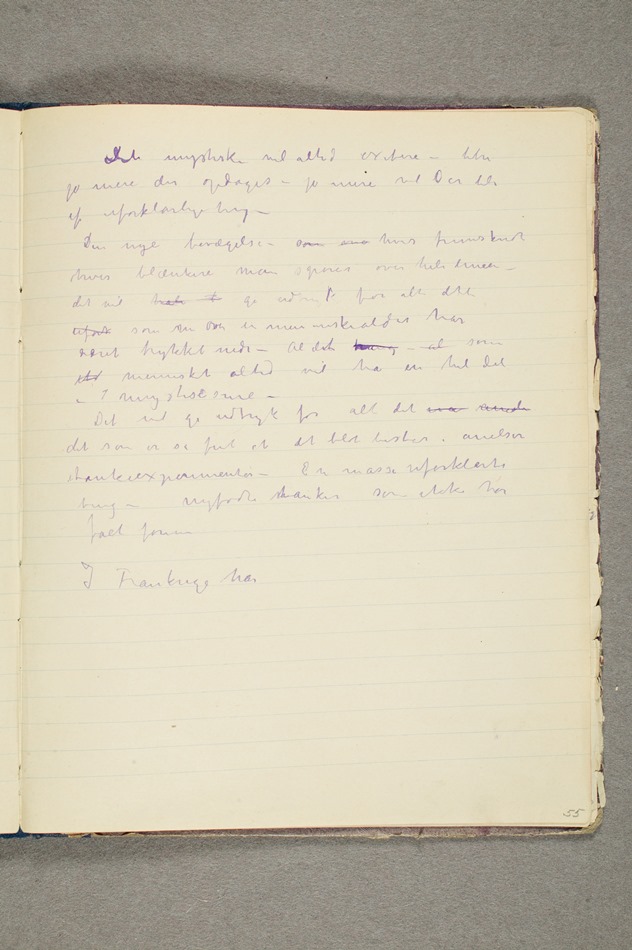 Det mystiske vil altid existere – 
jo mere der opdages – jo mere vil der
af uforklarlige ting –
Den nye bevægelse – som hvis fremskridt
hvis blinkene man spores over hele
det vil gi udtryk for alt dette
som nu er en menneskealder har
været trykket nede – Al det – al som
mennesket altid vil ha en hel del
af mystisisme –
Det vil gi udtryk for alt det
det som er så fint at det blot anelser
tankeexperimenter – En masse uforklarte
ting – nyfødte tanker som ikke har
fået form
I Frankrige har
55